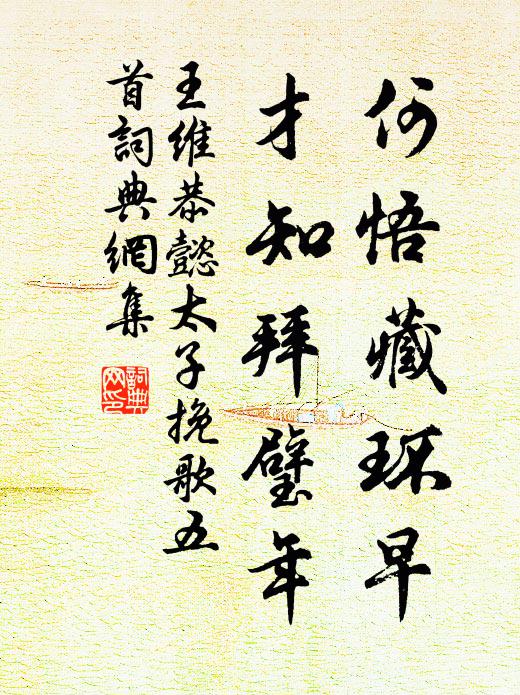 何悟藏环早
才知拜璧年
王維恭懿太子挽歌五
首詞典網集
詞典
网印